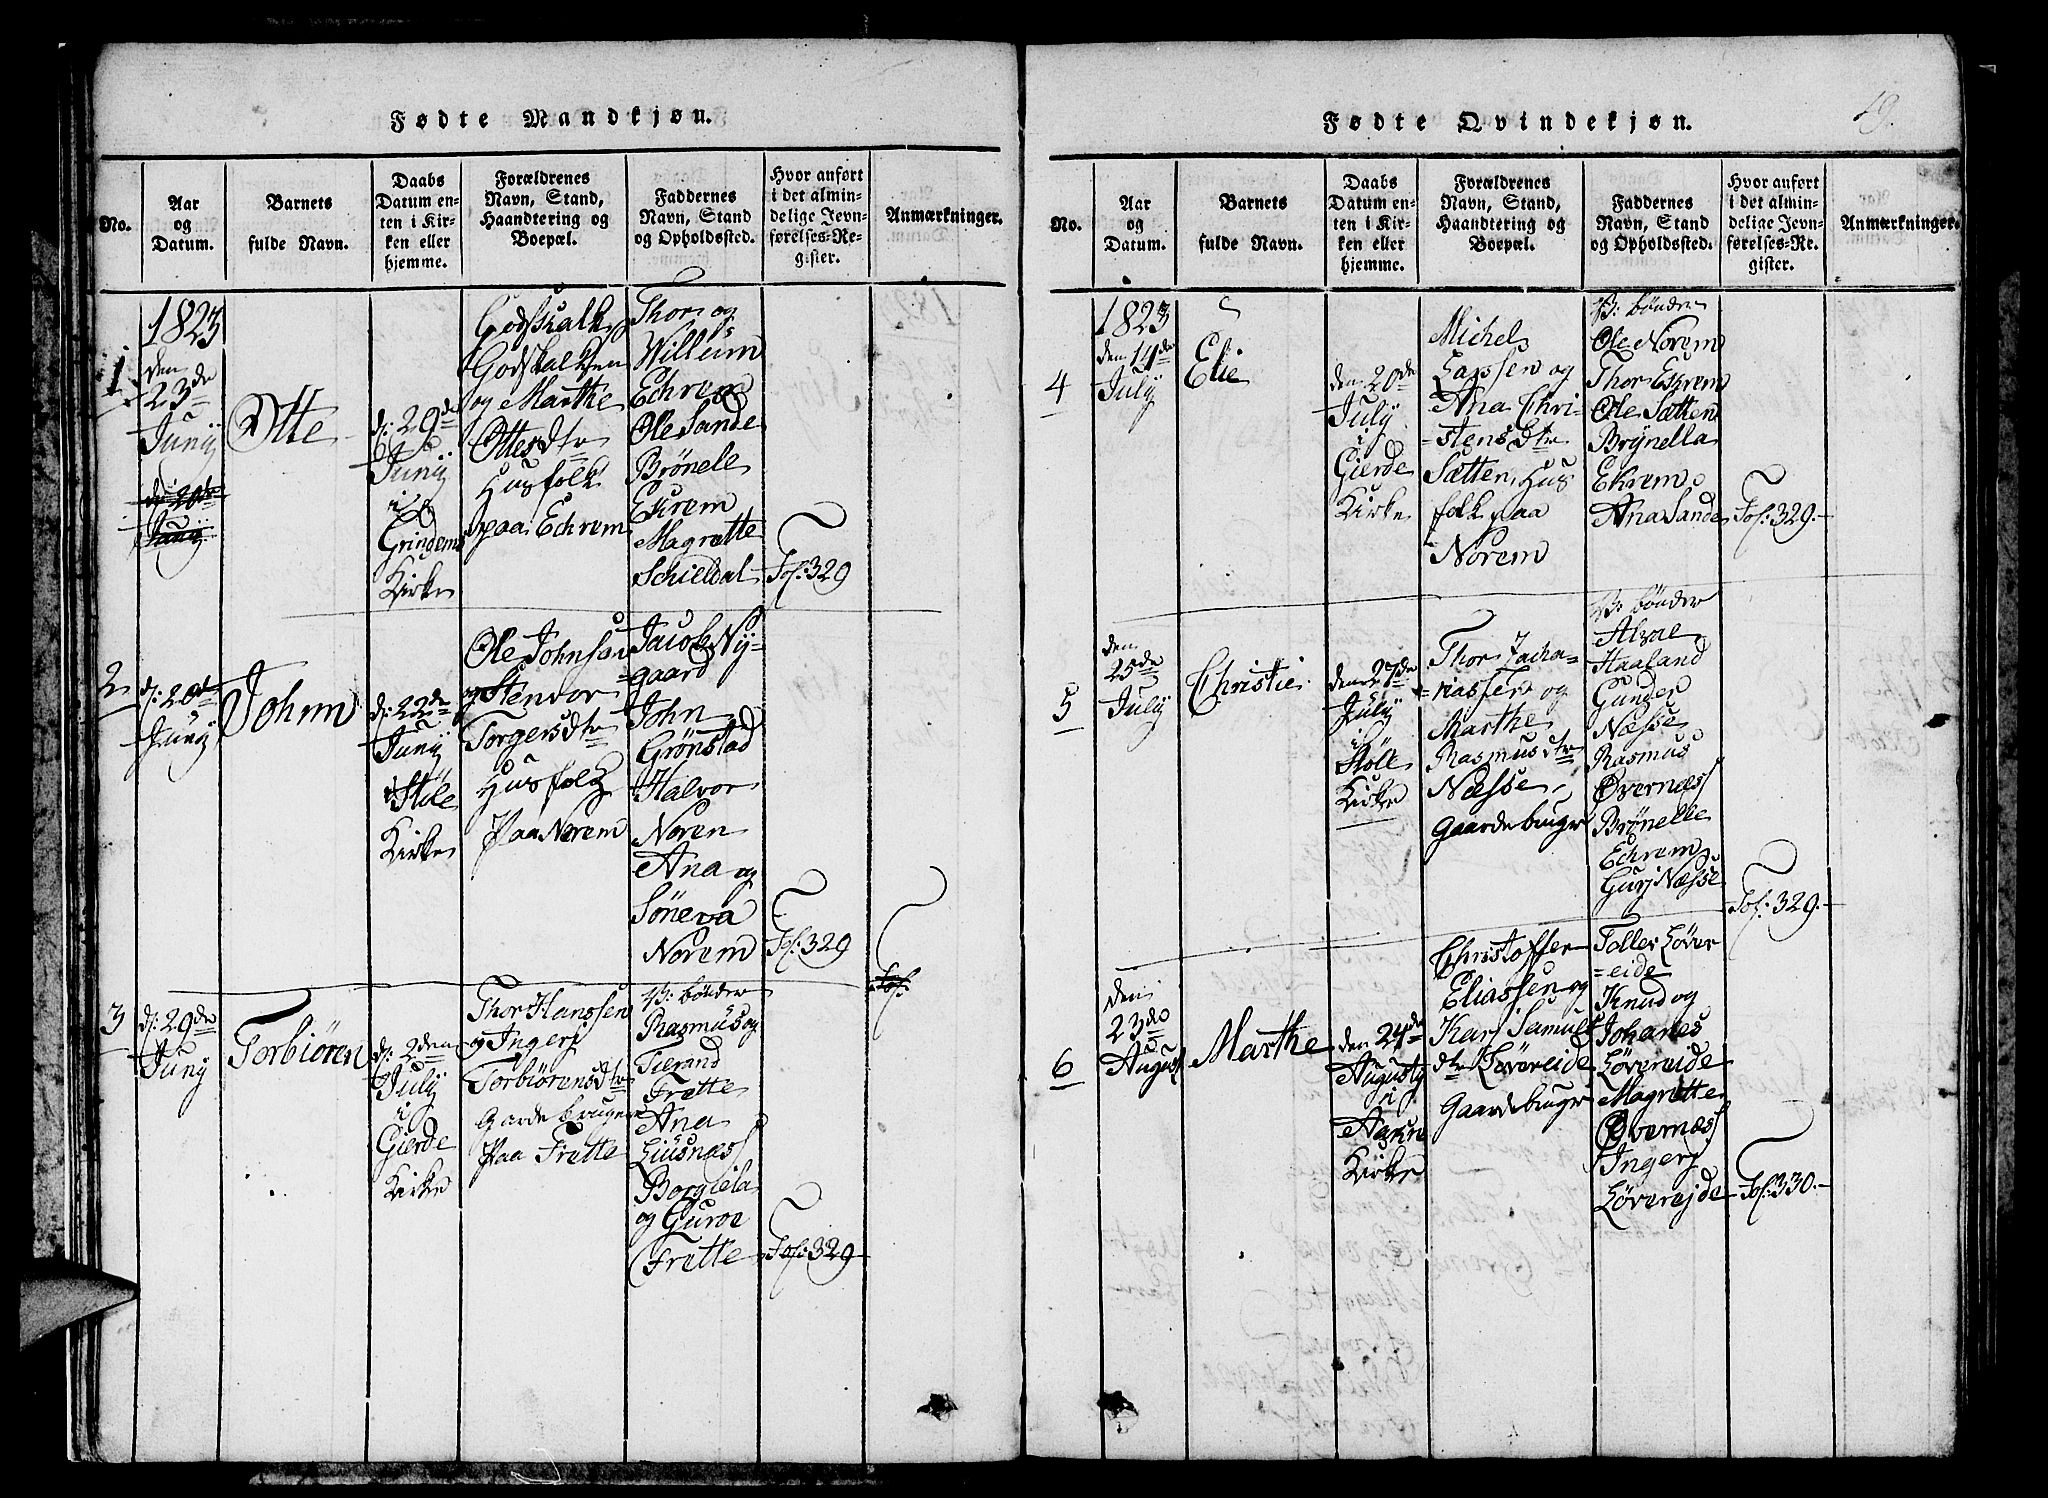 Fødte Mandkjøn.
No.
Aar
og
Datum.
Barnets
fulde Navn.
Daabs
Datum en-
ten i Kir-
ken eller
hjemme.
Forældrenes
Navn, Stand,
Haandtering og
Boepæl.
Faddernes
Navn, Stand
og Opholdssted.
Hvor anført
i det almin-
delige Jevn-
førelses-Re-
gister.
Anmærkninger.
1
1823
den
23de
Junij
de 20de
Junij
Otte
d: 29de
Junij
i
Grindem
Kirke
Godskalk
Godskalksen
og Marthe
Ottesdtr
Husfolk
paa Echrem
Thor og
Willum
Echrem
Ole Sande
Brønele
Eckrem
Magrette
Schieldal
Fol: 329
2
d: 20de
Junij
Johnn
d: 22de
Junij
i Støle
Kirke
Ole Johnsen
og Stenvor
Torgersdtr
Husfolk
Paa Norem
Jacob Ny-
=gaard
John
Grønstad
Halvor
Noren
Ana og
Søneva
Norem
Fol: 329
Fol:
3
d: 29de
Juny
Torbiøren
d: 2den
Julij
i
Gierde
Kirke
Thor Hanssen
og Ingerj
Torbiørensdtr
Gaardebruger
Paa Frette
B: bønder
Rasmus og
Tierand
Frette
Ana
Liusnæs
Borgiela
og Guroe
Frette
Fol: 329
Fødte Qvindekjøn.
19.
No.
Aar
og
Datum.
Barnets
fulde Navn.
Daabs
Datum en-
ten i Kir-
ken eller
hjemme.
Forældrenes
Navn, Stand,
Haandtering og
Boepæl.
Faddernes
Navn, Stand
og Opholdssted.
Hvor anført
i det almin-
delige Jevn-
førelses-Re-
gister.
Anmærkninger.
4
1823
den 14de
July
Elie
den 20de
July
i
Gierde
Kirke
Michel
Larssen og
Ana Chri-
=stensdtr
Sætten, Hus
folk paa
Norem
B: bønder
Ole Norem
Thor Ekrem
Ole Sætten
Brÿnella
Ekrem
Ana Sande
Fol: 329.
5
den
25de
July
Christie
den 27de
Julij
i
Støle
Kirke
Thor Zacha-
=riassen og
Marthe
Rasmusdtr
Næsse
Gaardebruger
B: bønder
Haaland
Gunder
Næsse
Rasmus
Øvernæs
Brønelle
Echrem
Guri Næsse
Fol: 329.
6
den
23de
August
Marthe
den 24de
Augusty
i
Kirke
Christoffer
Eliassen og
Karj Samuels
dtr Løvereide
Gaardebruger
Toller Løver
=eide
Knud og
Johanes
Løvereide
Magrette
Øvernæs
Ingerj
Løverejde
Fol: 330.